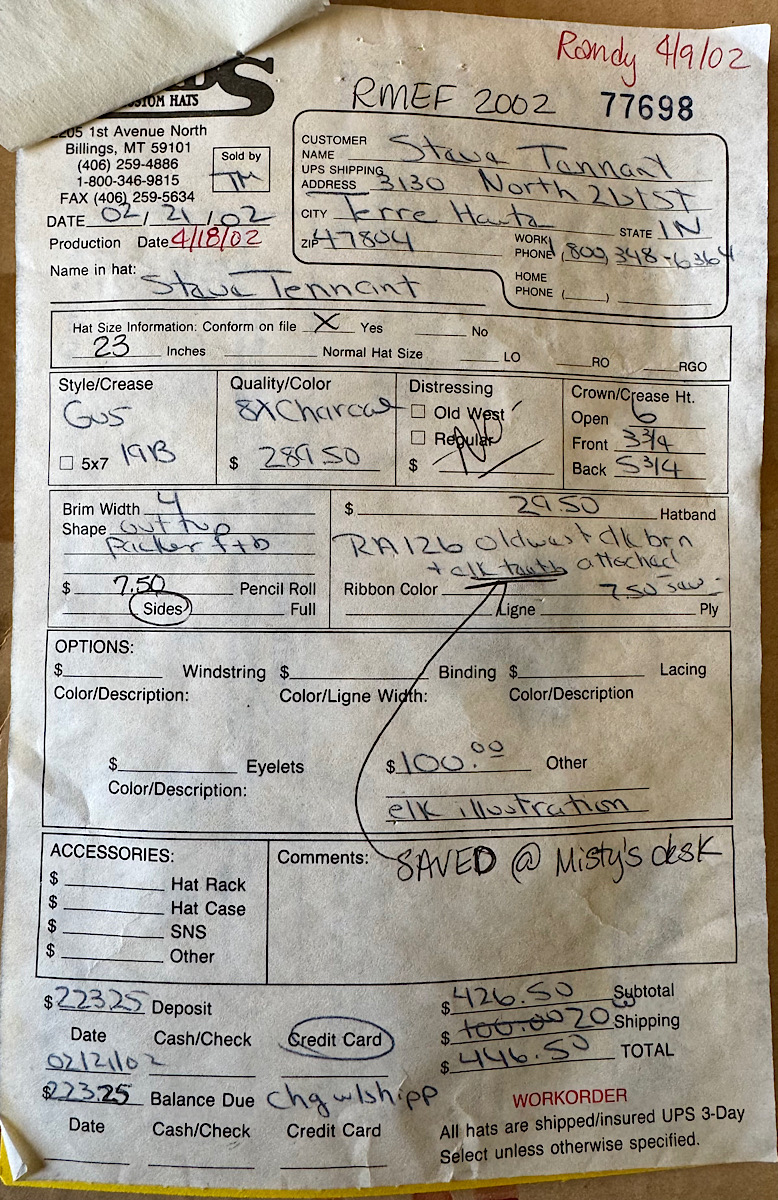 Randy 4/9/02
RMEF 2002 77698
CUSTOM HATS
2205 1st Avenue North
Billings, MT 59101
(406) 259-4886
1-800-346-9815
FAX (406) 259-5634
Sold by
TM
DATE 02/21/02
Production Date 4/18/02
CUSTOMER
NAME Steve Tennant
UPS SHIPPING
ADDRESS 3130 North 21st ST
CITY Terre Haute STATE IN
ZIP 47804 WORK PHONE (800) 348-6364
HOME PHONE ( )
Name in hat: Steve Tennant
Hat Size Information: Conform on file X Yes No
23 Inches Normal Hat Size LO RO RGO
Style/Crease
Gus
5x7 19B
Quality/Color
8X Charcoal
$ 289.50
Distressing
Old West
Regular
$ NO
Crown/Crease Ht.
Open 6
Front 3 3/4
Back 5 3/4
Brim Width 4
Shape cuttup
packer ftb
$ 7.50 Pencil Roll
Sides Full
$ 29.50 Hatband
RA126 oldwest dk brn
+ elk teeth attached
Ribbon Color 7.50 sew
Ligne Ply
OPTIONS:
$ Windstring $ Binding $ Lacing
Color/Description: Color/Ligne Width: Color/Description
$ Eyelets $100.00 Other
Color/Description:
elk illustration
ACCESSORIES:
$ Hat Rack
$ Hat Case
$ SNS
$ Other
Comments: SAVED @ Misty's desk
$223.25 Deposit
Date Cash/Check Credit Card
02/21/02
$223.25 Balance Due Chg w/shipp
Date Cash/Check Credit Card
$426.50 Subtotal
$ 100.00 20 Shipping
$446.50 TOTAL
WORKORDER
All hats are shipped/insured UPS 3-Day
Select unless otherwise specified.